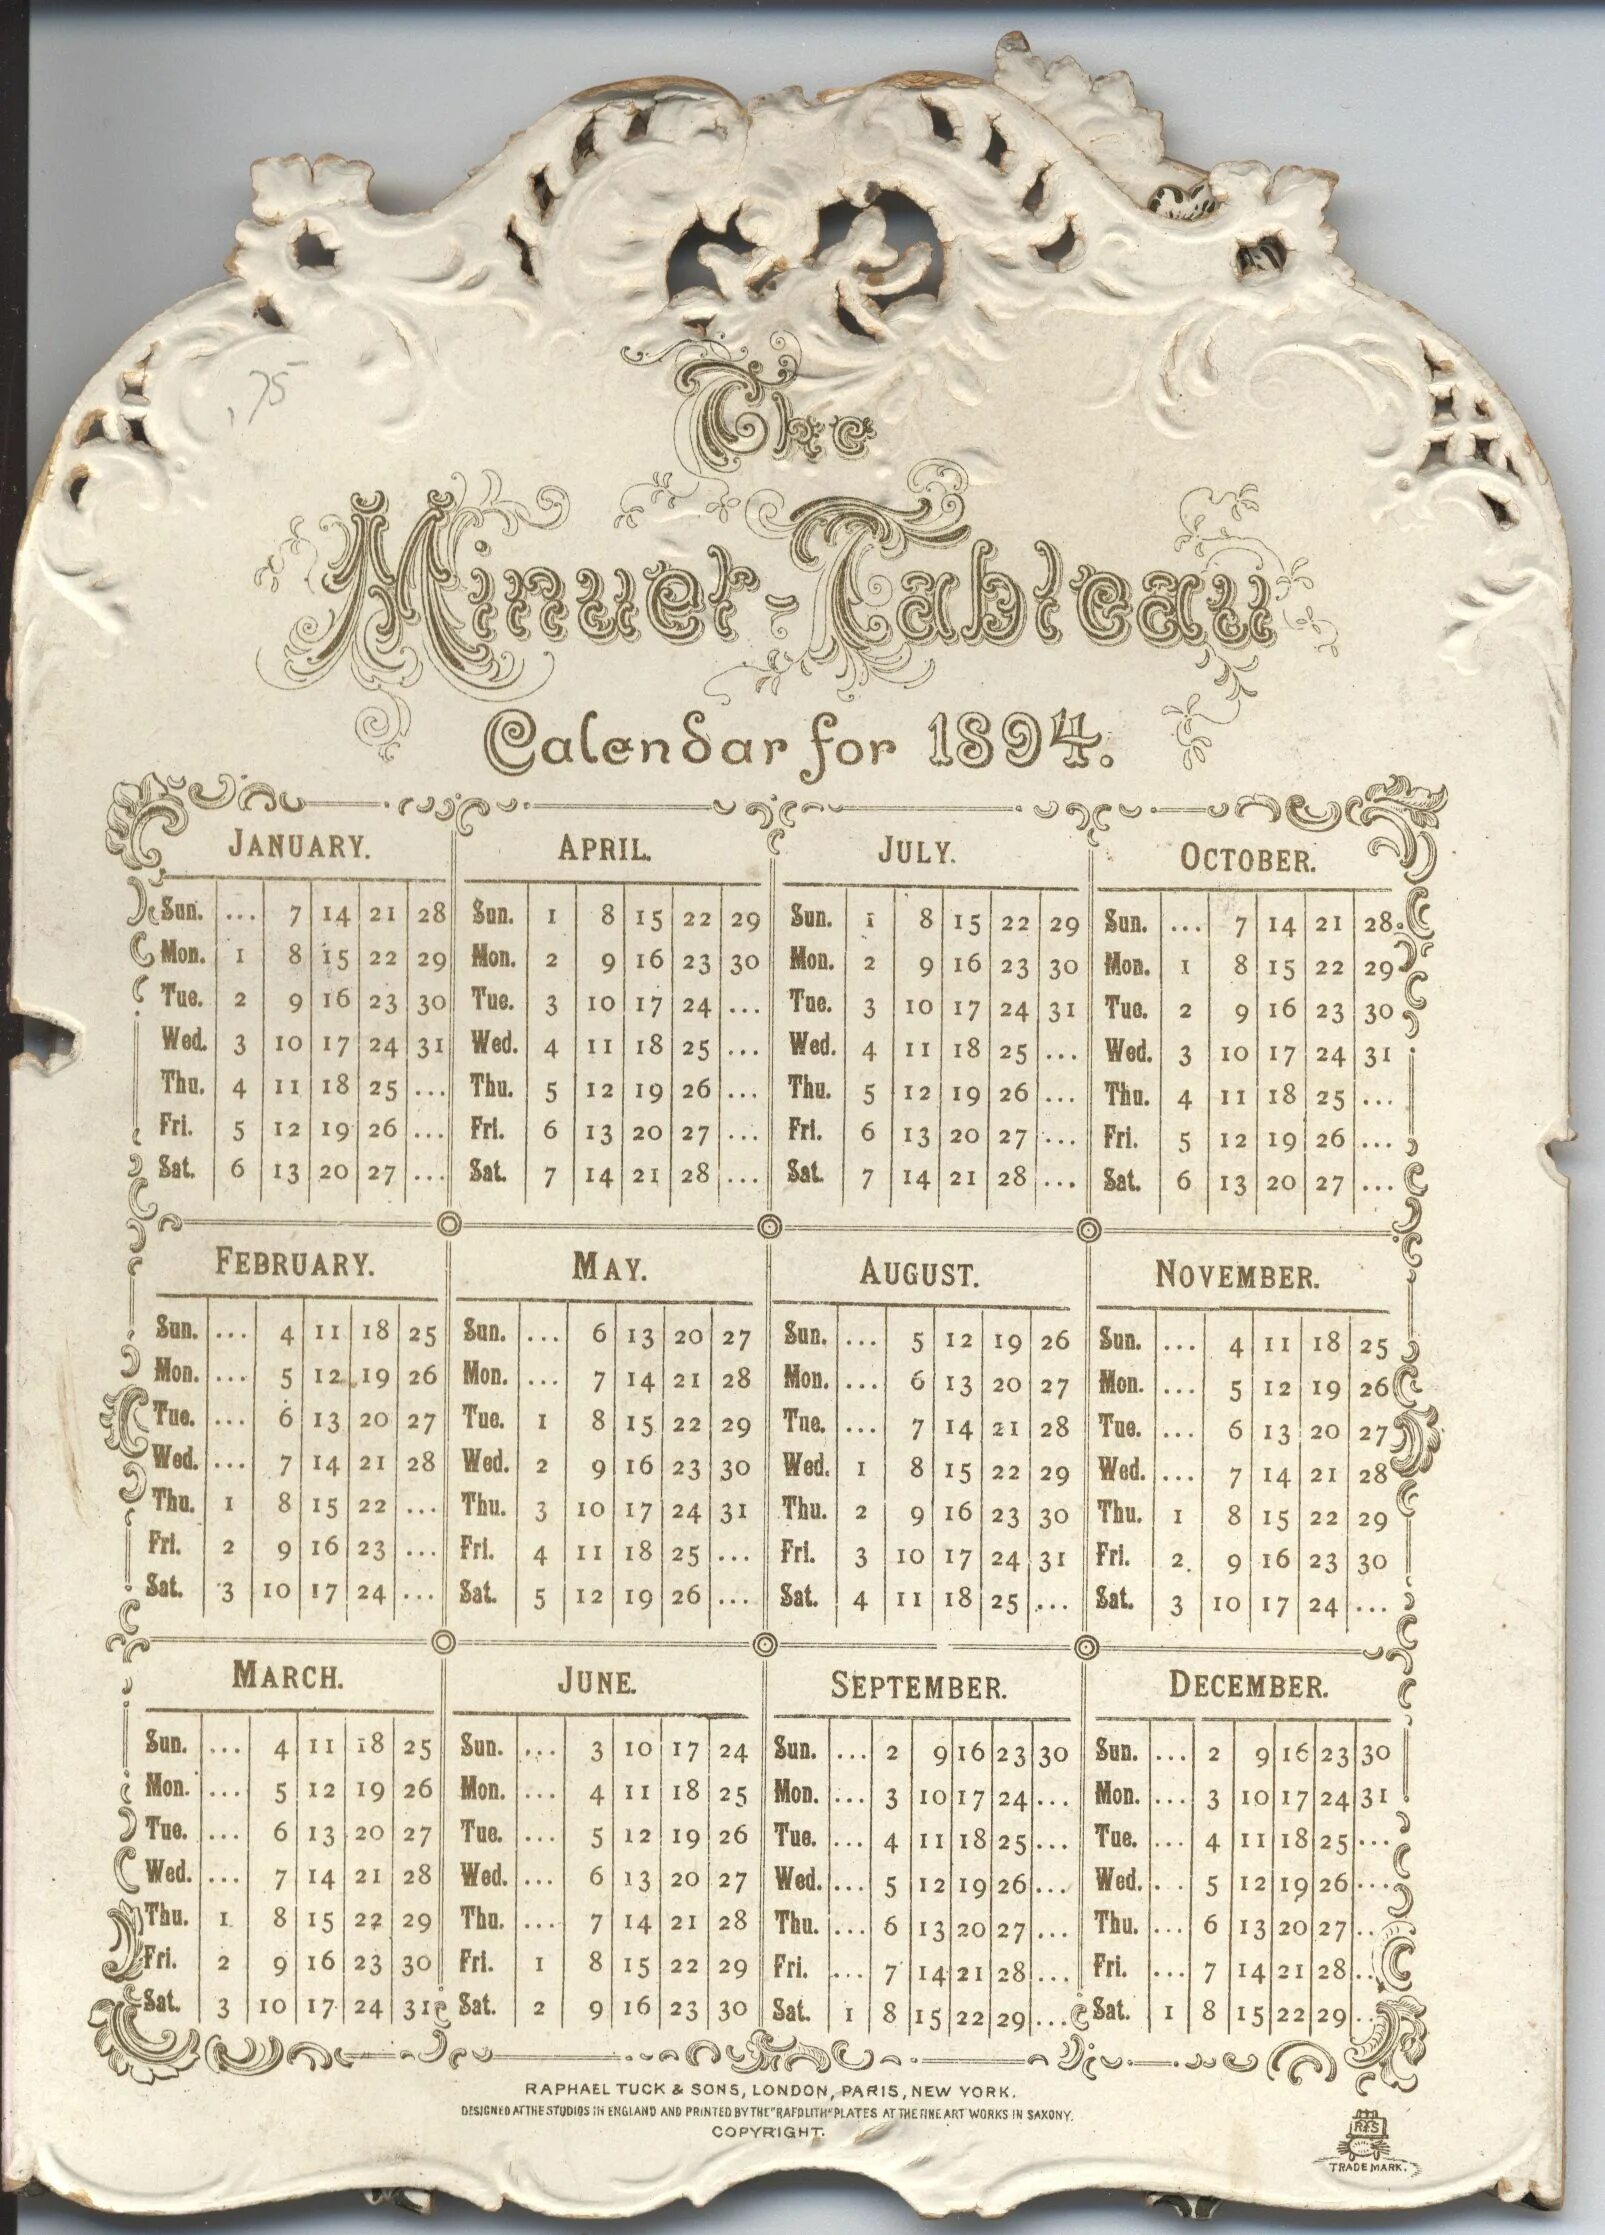 .75
The
Minuet-Tableau
Calendar for 1894.
JANUARY.
Sun. ... 7 14 21 28
Mon. 1 8 15 22 29
Tue. 2 9 16 23 30
Wed. 3 10 17 24 31
Thu. 4 11 18 25 ...
Fri. 5 12 19 26 ...
Sat. 6 13 20 27 ...
FEBRUARY.
Sun. ... 4 11 18 25
Mon. ... 5 12 19 26
Tue. ... 6 13 20 27
Wed. ... 7 14 21 28
Thu. 1 8 15 22 ...
Fri. 2 9 16 23 ...
Sat. 3 10 17 24 ...
MARCH.
Sun. ... 4 11 18 25
Mon. ... 5 12 19 26
Tue. ... 6 13 20 27
Wed. ... 7 14 21 28
Thu. 1 8 15 22 29
Fri. 2 9 16 23 30
Sat. 3 10 17 24 31
APRIL.
Sun. 1 8 15 22 29
Mon. 2 9 16 23 30
Tue. 3 10 17 24 ...
Wed. 4 11 18 25 ...
Thu. 5 12 19 26 ...
Fri. 6 13 20 27 ...
Sat. 7 14 21 28 ...
MAY.
Sun. ... 6 13 20 27
Mon. ... 7 14 21 28
Tue. 1 8 15 22 29
Wed. 2 9 16 23 30
Thu. 3 10 17 24 31
Fri. 4 11 18 25 ...
Sat. 5 12 19 26 ...
JUNE.
Sun. ... 3 10 17 24
Mon. ... 4 11 18 25
Tue. ... 5 12 19 26
Wed. ... 6 13 20 27
Thu. ... 7 14 21 28
Fri. 1 8 15 22 29
Sat. 2 9 16 23 30
JULY.
Sun. 1 8 15 22 29
Mon. 2 9 16 23 30
Tue. 3 10 17 24 31
Wed. 4 11 18 25 ...
Thu. 5 12 19 26 ...
Fri. 6 13 20 27 ...
Sat. 7 14 21 28 ...
AUGUST.
Sun. ... 5 12 19 26
Mon. ... 6 13 20 27
Tue. ... 7 14 21 28
Wed. 1 8 15 22 29
Thu. 2 9 16 23 30
Fri. 3 10 17 24 31
Sat. 4 11 18 25 ...
SEPTEMBER.
Sun. ... 2 9 16 23 30
Mon. ... 3 10 17 24 ...
Tue. ... 4 11 18 25 ...
Wed. ... 5 12 19 26 ...
Thu. ... 6 13 20 27 ...
Fri. ... 7 14 21 28 ...
Sat. 1 8 15 22 29 ...
OCTOBER.
Sun. ... 7 14 21 28
Mon. 1 8 15 22 29
Tue. 2 9 16 23 30
Wed. 3 10 17 24 31
Thu. 4 11 18 25 ...
Fri. 5 12 19 26 ...
Sat. 6 13 20 27 ...
NOVEMBER.
Sun. ... 4 11 18 25
Mon. ... 5 12 19 26
Tue. ... 6 13 20 27
Wed. ... 7 14 21 28
Thu. 1 8 15 22 29
Fri. 2 9 16 23 30
Sat. 3 10 17 24 ...
DECEMBER.
Sun. ... 2 9 16 23 30
Mon. ... 3 10 17 24 31
Tue. ... 4 11 18 25 ...
Wed. . . 5 12 19 26 ...
Thu. ... 6 13 20 27 ..
Fri. ... 7 14 21 28 ..
Sat. 1 8 15 22 29 ..
RAPHAEL TUCK & SONS, LONDON, PARIS, NEW YORK.
DESIGNED AT THE STUDIOS IN ENGLAND AND PRINTED BY THE "RAFOLITH" PLATES AT THE FINE ART WORKS IN SAXONY.
COPYRIGHT.
RTS
TRADE MARK.